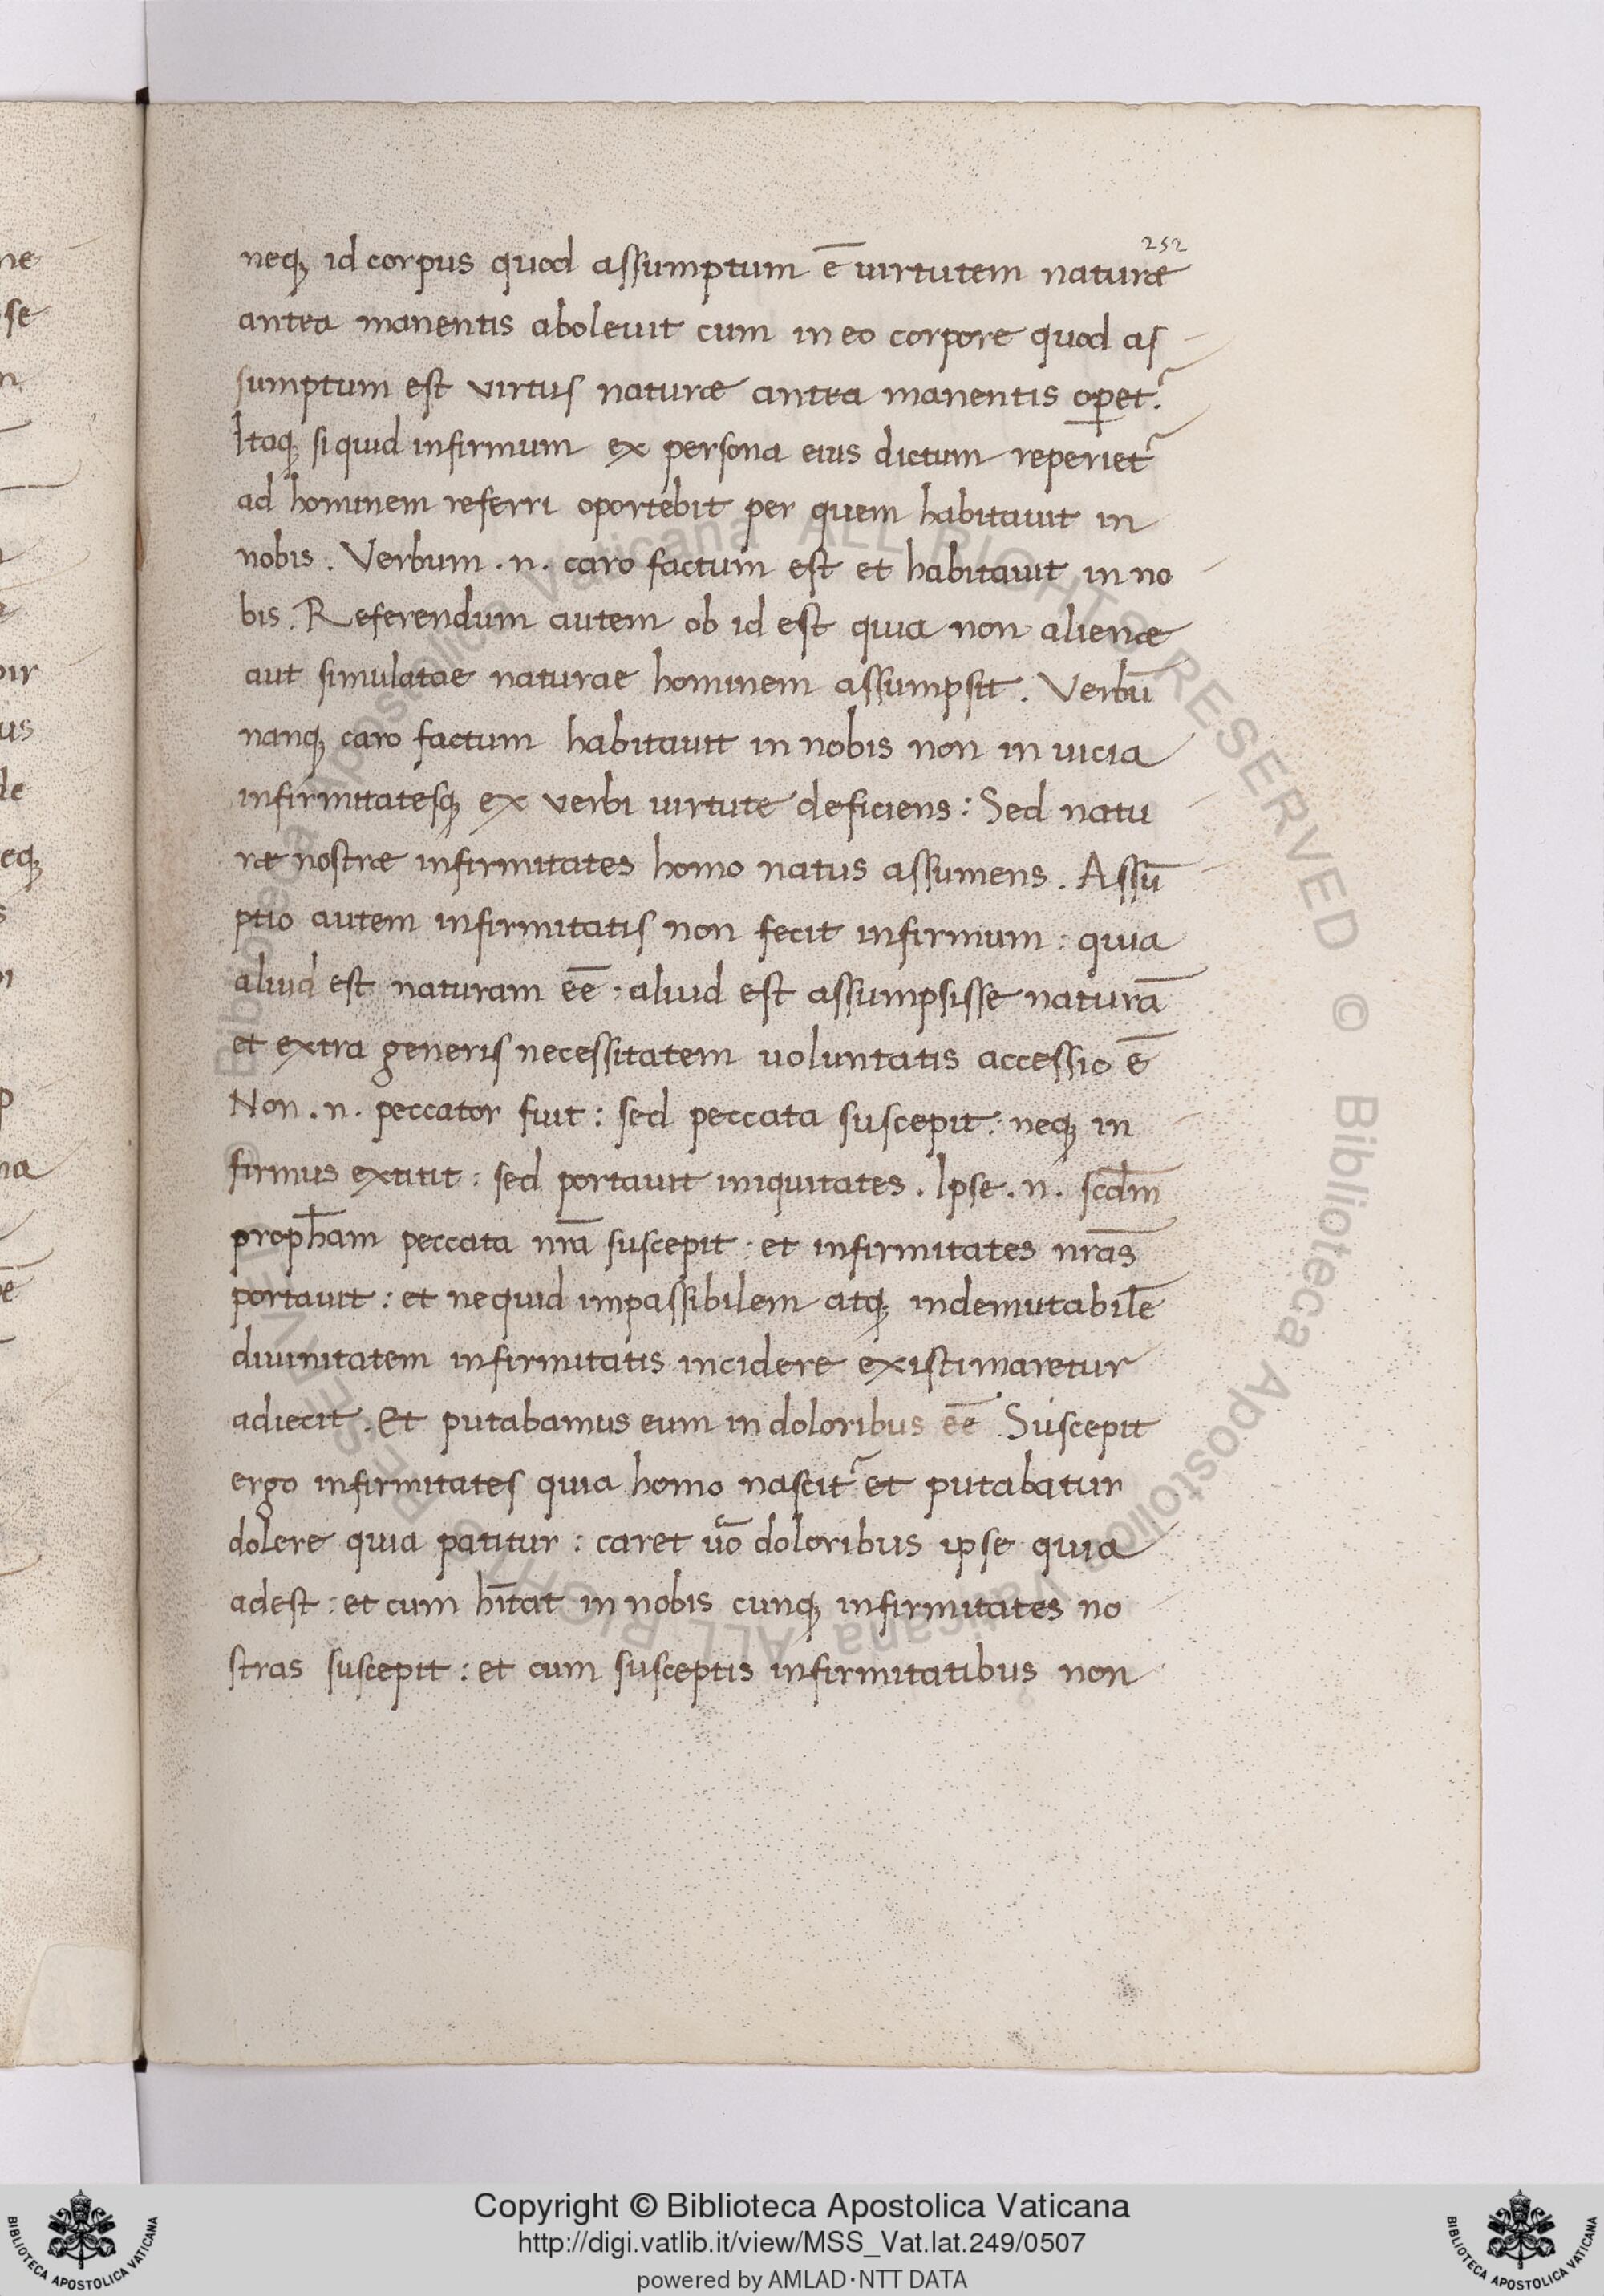 252
neq; id corpus quod assumptum ē uirtutem naturæ
antea manentis aboleuit cum in eo corpore quod as
sumptum est virtus naturæ antea manentis op̲et᷑.
Itaq; si quid infirmum ex persona eius dictum reperiet᷑
ad hominem referri oportebit per quem habitauit in
nobis. Verbum .n. caro factum est et habitauit in no
bis. Referendum autem ob id est quia non alienæ
aut simulatae naturae hominem assumpsit. Verbū
nanq; caro factum habitauit in nobis non in uicia
infirmitatesq; ex verbi uirtute deficiens: Sed natu
ræ nostræ infirmitates homo natus assumens. Assū
ptio autem infirmitatis non fecit infirmum: quia
aliud est naturam eē · aliud est assumpsisse naturā
et extra generis necessitatem uoluntatis accessio ē
Non .n. peccator fuit: sed peccata suscepit: neq; in
firmus extitit: sed portauit iniquitates. Ipse .n. scd̄m
proph̄am peccata nr̄a suscepit: et infirmitates nr̄as
portauit: et ne quid impassibilem atq; indemutabilē
diuinitatem infirmitatis incidere existimaretur
adiecit. Et putabamus eum in doloribus eē Suscepit
ergo infirmitates quia homo nascit᷑ et putabatur
dolere quia patitur: caret uō doloribus ipse quia
adest: et cum hītat in nobis cunq; infirmitates no
stras suscepit: et cum susceptis infirmitatibus non
Copyright © Biblioteca Apostolica Vaticana
http://digi.vatlib.it/view/MSS_Vat.lat.249/0507
powered by AMLAD·NTT DATA